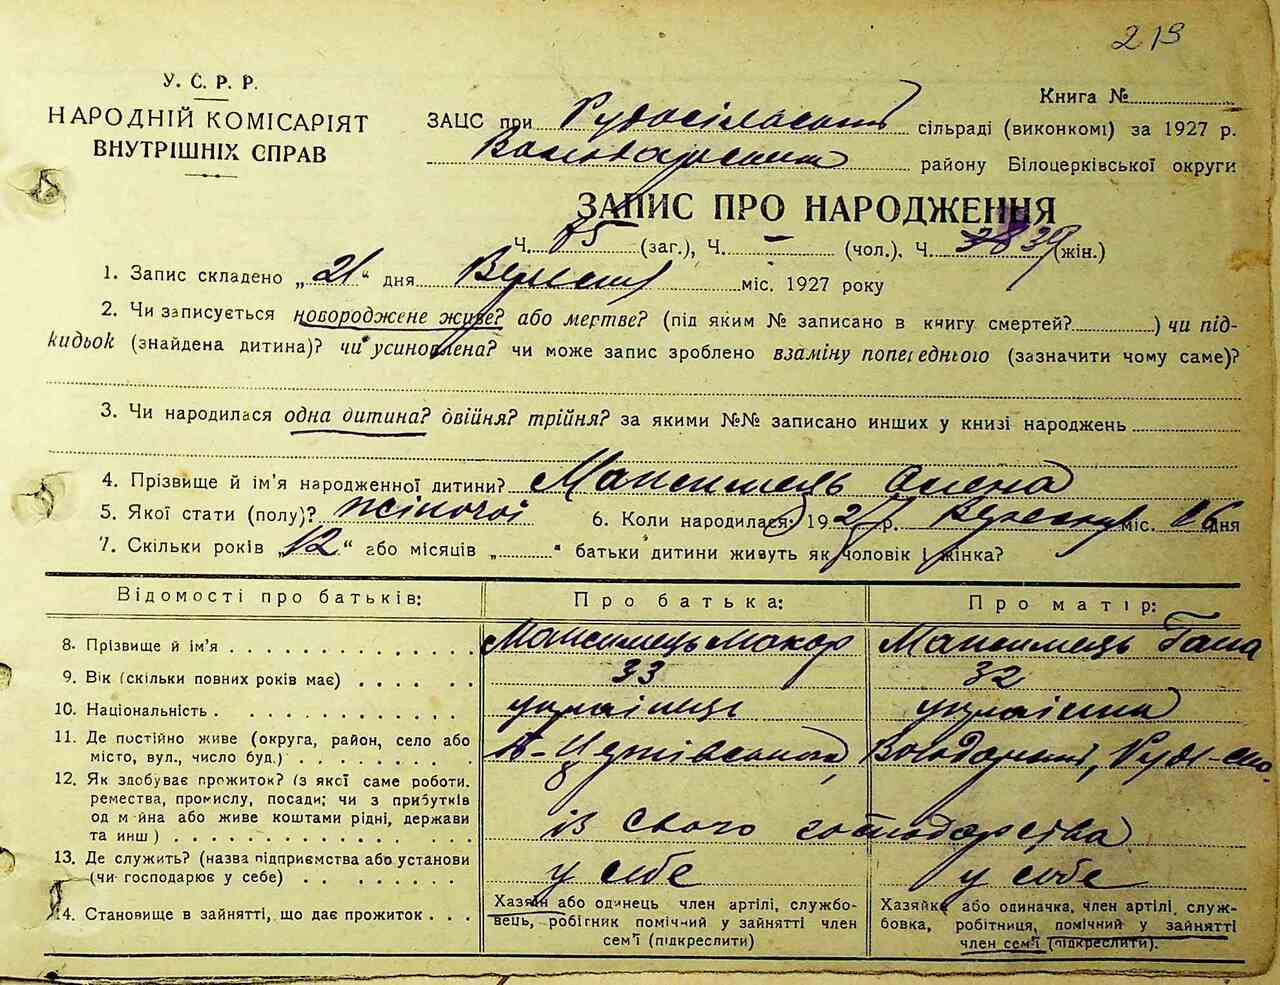 219
У. С. Р. Р.
НАРОДНІЙ КОМІСАРІЯТ
ВНУТРІШНІХ СПРАВ
Книга №
ЗАЦС при Рудосільський сільраді (виконкомі) за 1927 р.
Володарський району Білоцерківської округи
ЗАПИС ПРО НАРОДЖЕННЯ
Ч. 75 (заг.), Ч. – (чол.), Ч. 39 (жін.)
1. Запис складено „21“ дня Вересня міс. 1927 року
2. Чи записується новороджене живе? або мертве? (під яким № записано в книгу смертей?) чи під-
кидьок (знайдена дитина)? чи усиновлена? чи може запис зроблено взаміну попереднього (зазначити чому саме)?
3. Чи народилася одна дитина? двійня? трійня? за якими №№ записано инших у книзі народжень
4. Прізвище й ім'я народженної дитини? Максимець Олена
5. Якої стати (полу)? жіночої 6. Коли народилася? 1927 р. Вересня міс. 16 дня
7. Скільки років „12“ або місяців „ “ батьки дитини живуть як чоловік і жінка?
Відомості про батьків: Про батька: Про матір:
8. Прізвище й ім'я Максимець Макар Максимець Гана
9. Вік (скільки повних років має) 33 32
10. Національність українець українка
11. Де постійно живе (округа, район, село або
місто, вул., число буд.) Б-Церківського, Володарський, Руде-село.
12. Як здобуває прожиток? (з якої саме роботи.
ремества, промислу, посади; чи з прибутків
од майна або живе коштами рідні, держави
та инш) із свого господарства
13. Де служить? (назва підприємства або установи
(чи господарює у себе) у себе у себе
14. Становище в зайнятті, що дає прожиток
Хазяїн або одинець член артілі, службо-
вець, робігник помічний у зайнятті член
сем'ї (підкреслити)
Хазяйка або одиначка, член артілі, служ-
бовка, робітниця, помічний у зайнятті
член сем'ї (підкреслити).